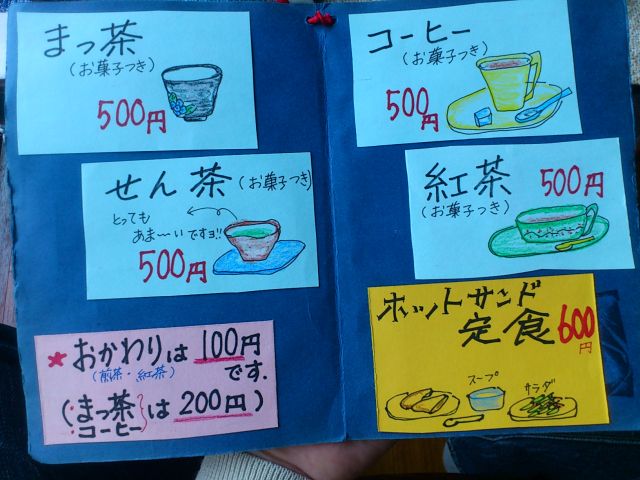 まっ茶
(お菓子つき)
500円
せん茶(お菓子つき)
とっても
あま〜いですヨ!!
500円
★おかわりは100円
(煎茶・紅茶)
です.
(まっ茶
コーヒー
は200円)
コーヒー
(お菓子つき)
500円
紅茶
500円
(お菓子つき)
ホットサンド
定食
600円
スープ
サラダ